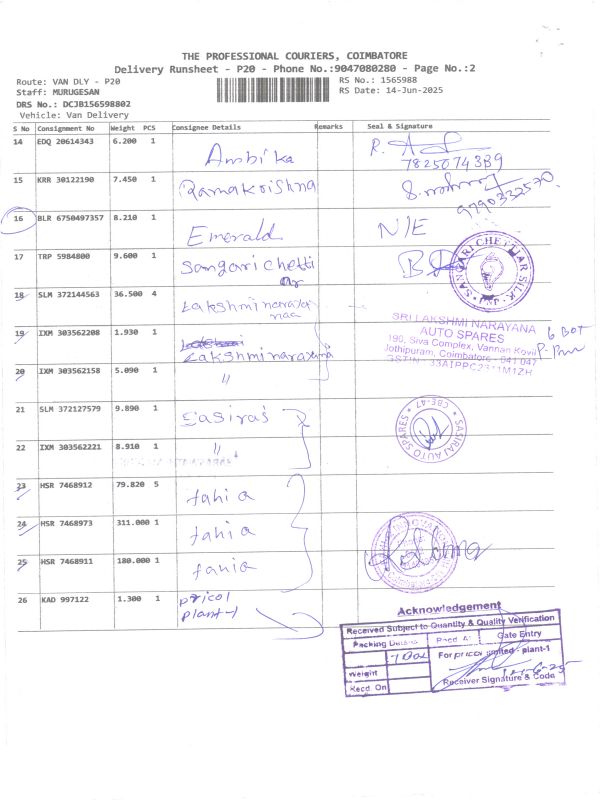 THE PROFESSIONAL COURIERS, COIMBATORE
Delivery Runsheet - P20 - Phone No.:9047080280 - Page No.:2
Route: VAN DLY - P20
Staff: MURUGESAN
DRS No.: DCJB156598802
Vehicle: Van Delivery
RS No.: 1565988
RS Date: 14-Jun-2025
S No Consignment No Weight PCS Consignee Details Remarks Seal & Signature
14 EDQ 20614343 6.200 1 Ambika
7825074339
15 KRR 30122190 7.450 1 Ramakrishna
9790332570
16 BLR 6750497357 8.210 1 Emerald N/E
17 TRP 5984800 9.600 1 Sangarichetti ar
SANGARI CHETTIAR SILK
18 SLM 372144563 36.500 4 Lakshminaraya naa
SRI LAKSHMI NARAYANA
AUTO SPARES
190, Siva Complex, Vannan Kovil
Jothipuram, Coimbatore - 641 047
6 BOX
19 IXM 303562208 1.930 1 Lakshminarayana
20 IXM 303562158 5.090 1 "
21 SLM 372127579 9.890 1 Sasiras
SASIRAJ AUTO SPARES
CBE-47
22 IXM 303562221 8.910 1 "
23 HSR 7468912 79.820 5 tahia
24 HSR 7468973 311.000 1 tahia
25 HSR 7468911 180.000 1 tahia
26 KAD 997122 1.300 1 pricol
plant-1
Acknowledgement
Received Subject to Quantity & Quality Verification
Packing Details
Gate Entry
1 Box
For pricol limited - plant-1
Weight
Recd. On
Receiver Signature & Code